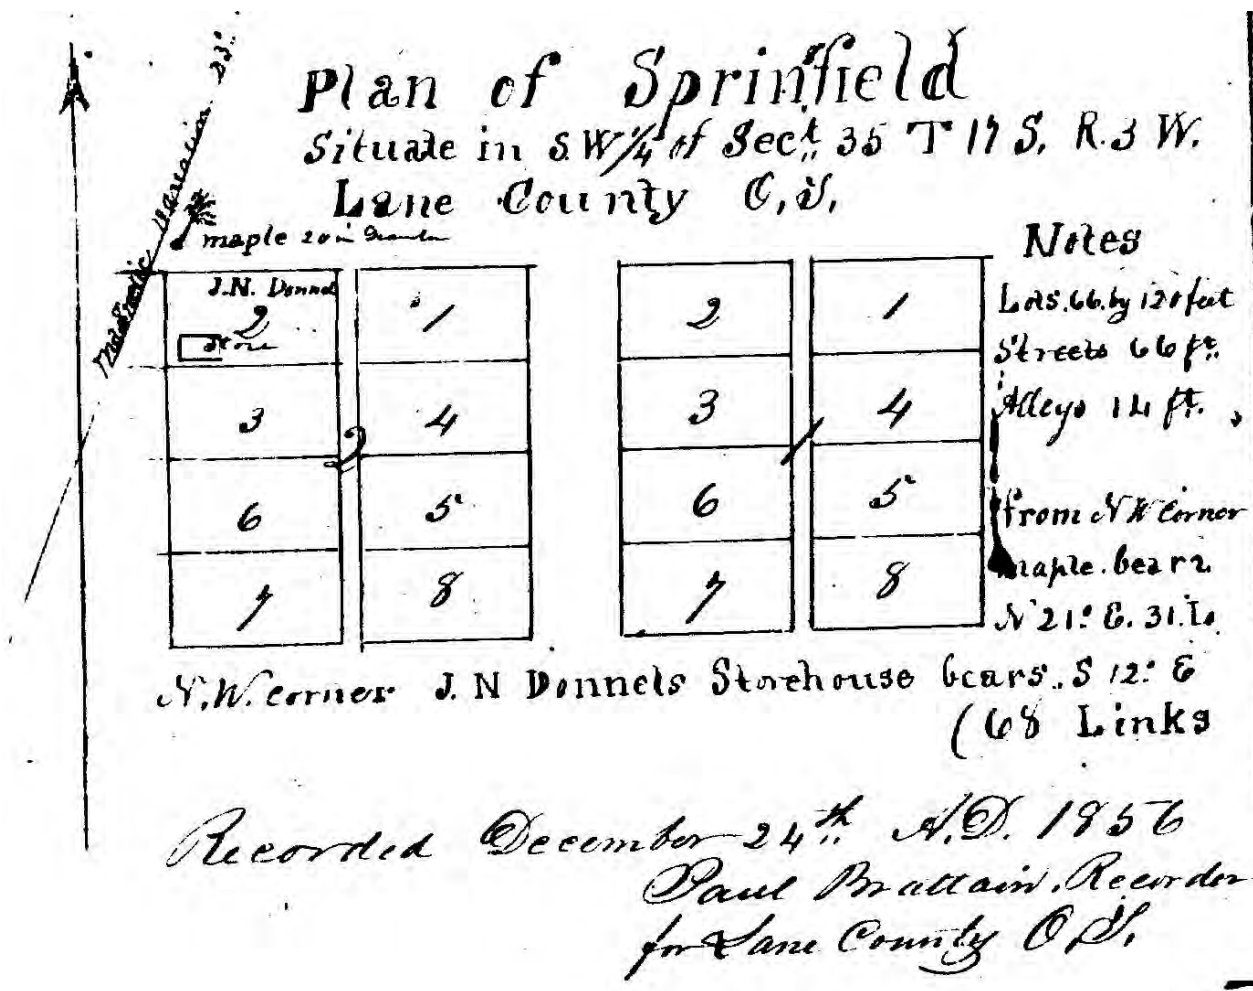 Plan of Sprinfield
Situate in S.W 1/4 of Sect. 35 T 17 S. R. 3 W.
Lane County O,T,
Magnetic Variation
maple 20 in
J.N. Donnel
2
Store
1
3
4
2
6
5
7
8
2
1
3
4
1
6
5
7
8
Notes
Lots. 66. by 120 feet
Streets 66 ft.
Alleys 14 ft.
from N W Corner
maple. bears
N 21° E. 31. L
N.W. corner J. N Donnels Storehouse bears. S 12° E
(68 Links
Recorded December 24th A.D. 1856
Paul Brattain. Recorder
for Lane County O T.